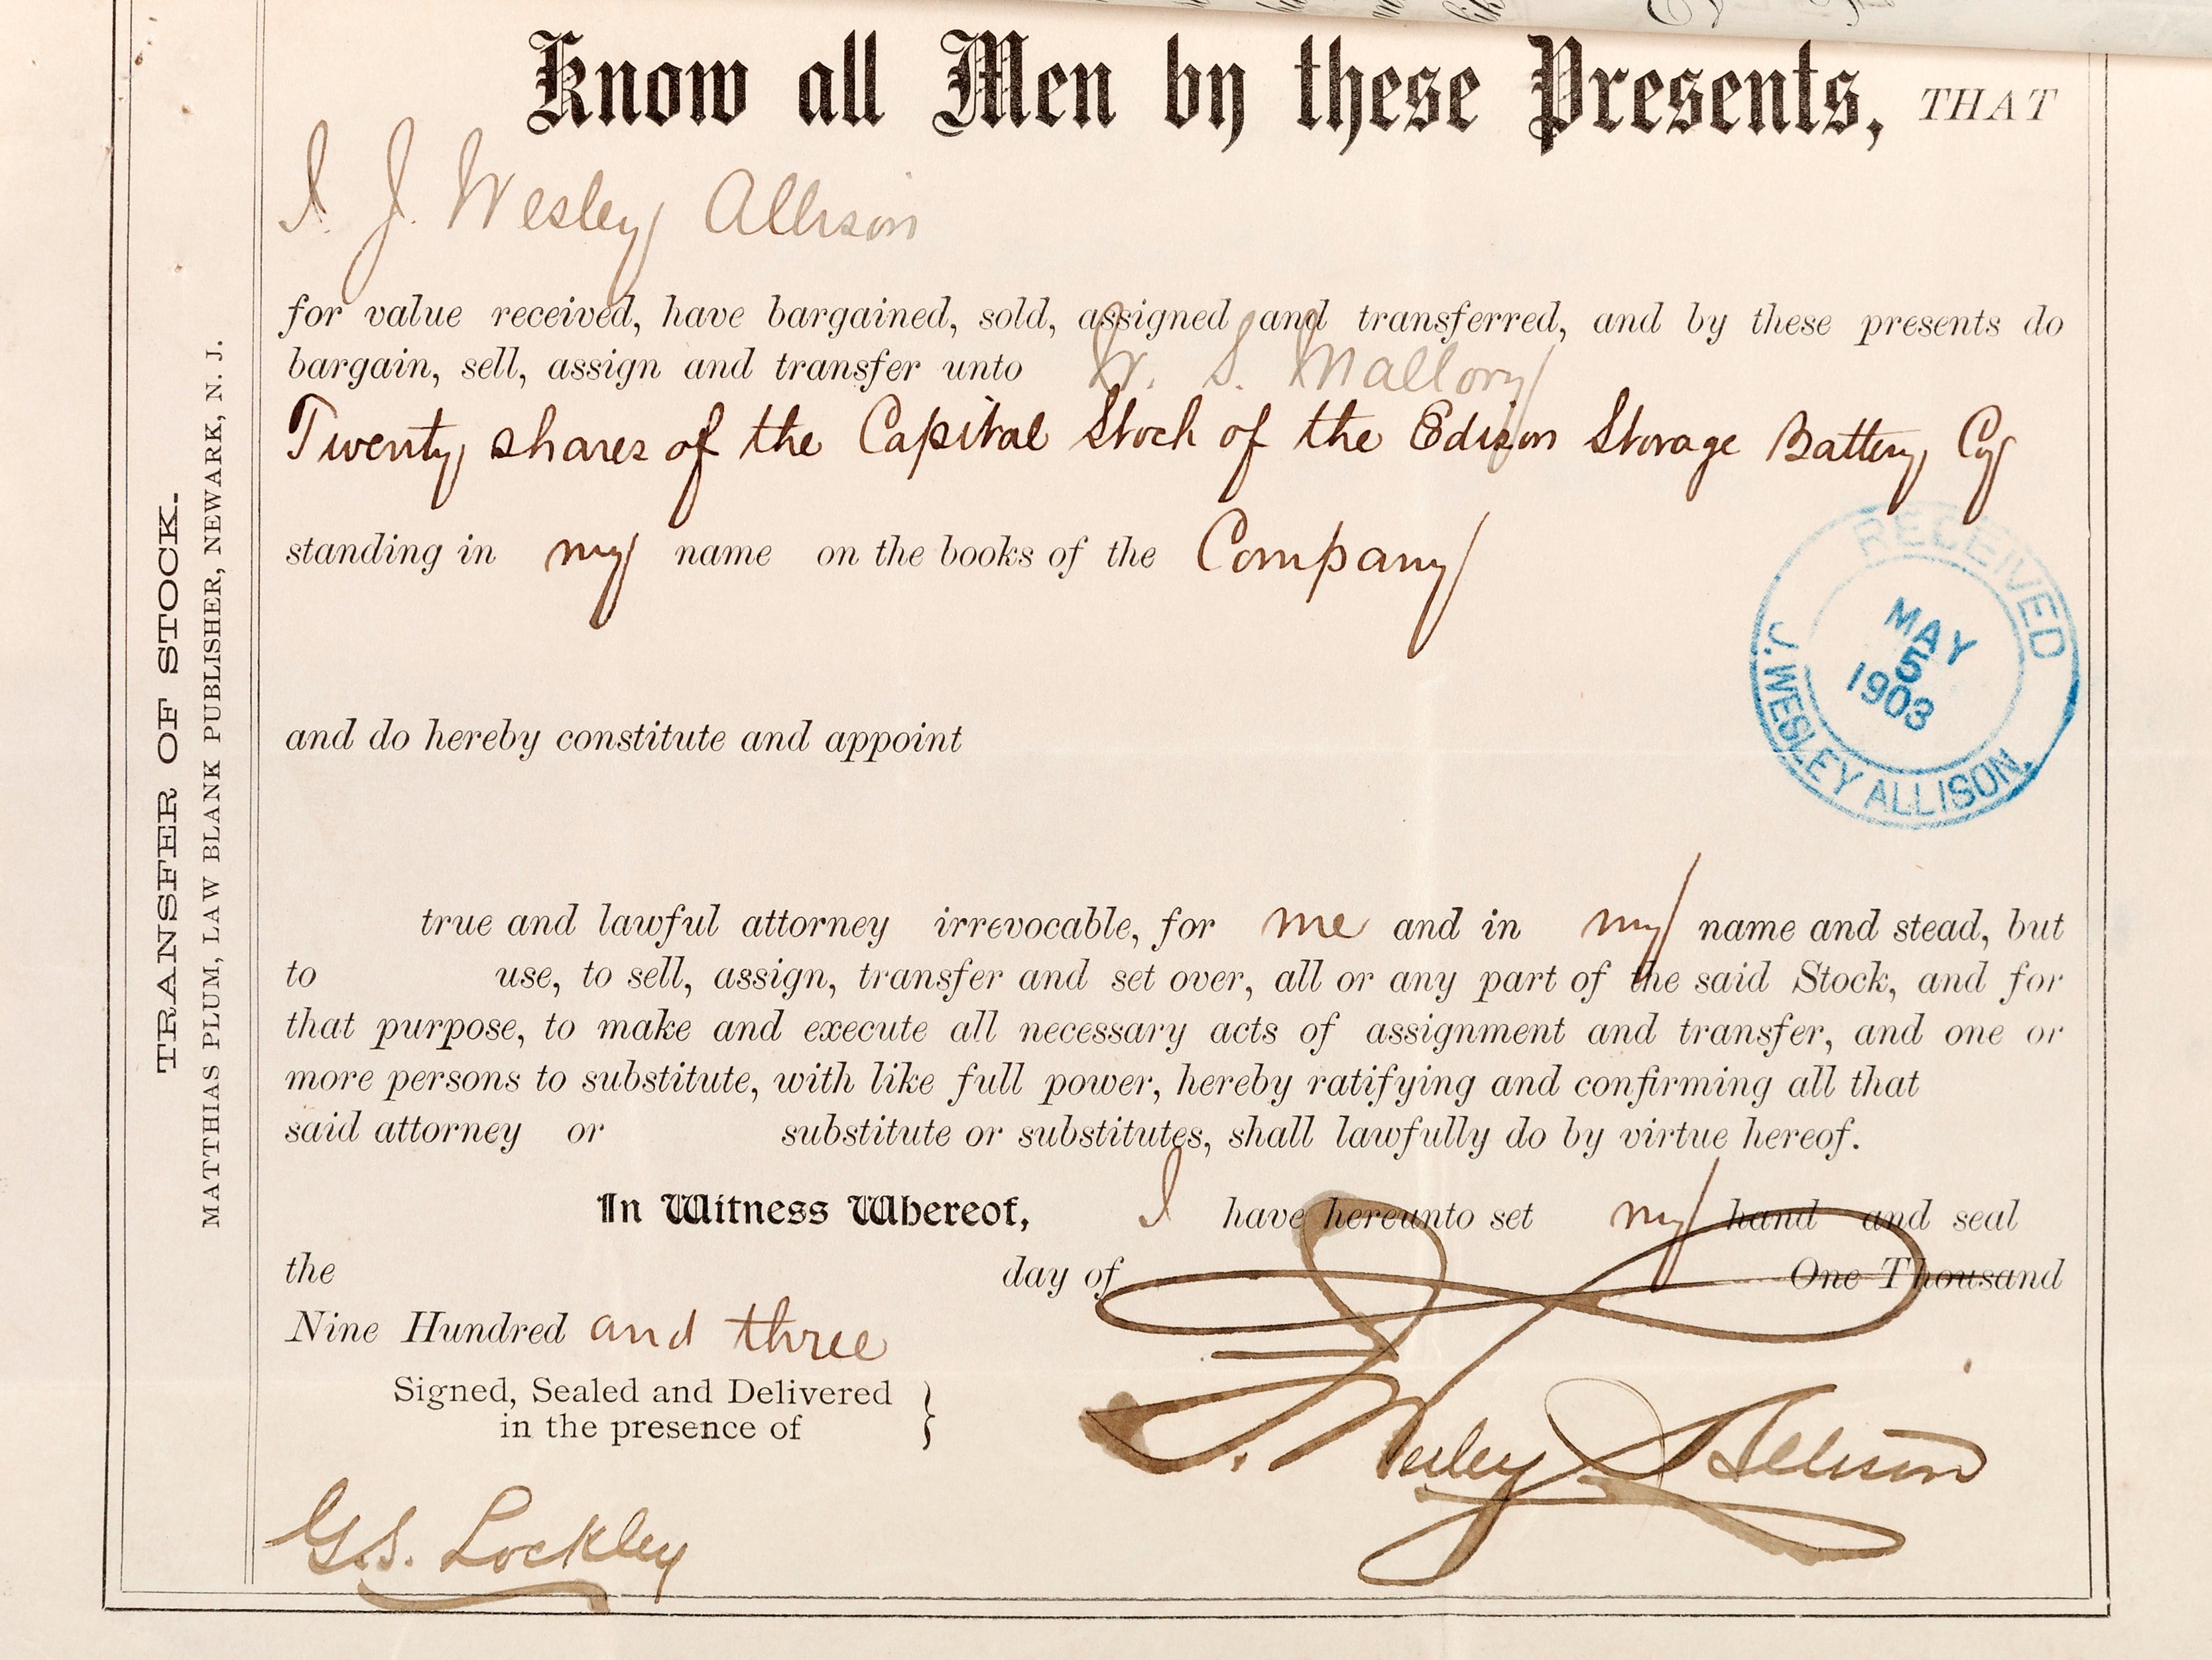 Know all Men by these Presents, THAT
I J. Wesley Allison
for value received, have bargained, sold, assigned and transferred, and by these presents do
bargain, sell, assign and transfer unto W. S. Mallory
Twenty shares of the Capital Stock of the Edison Storage Battery Co
standing in my name on the books of the Company
RECEIVED
MAY
5
1903
J. WESLEY ALLISON.
and do hereby constitute and appoint
true and lawful attorney irrevocable, for me and in my name and stead, but
to use, to sell, assign, transfer and set over, all or any part of the said Stock, and for
that purpose, to make and execute all necessary acts of assignment and transfer, and one or
more persons to substitute, with like full power, hereby ratifying and confirming all that
said attorney or substitute or substitutes, shall lawfully do by virtue hereof.
In Witness Whereof, I have hereunto set my hand and seal
the day of One Thousand
Nine Hundred and three
Signed, Sealed and Delivered
in the presence of
J. Wesley Allison
G.S. Lockley
TRANSFER OF STOCK.
MATTHIAS PLUM, LAW BLANK PUBLISHER, NEWARK, N. J.